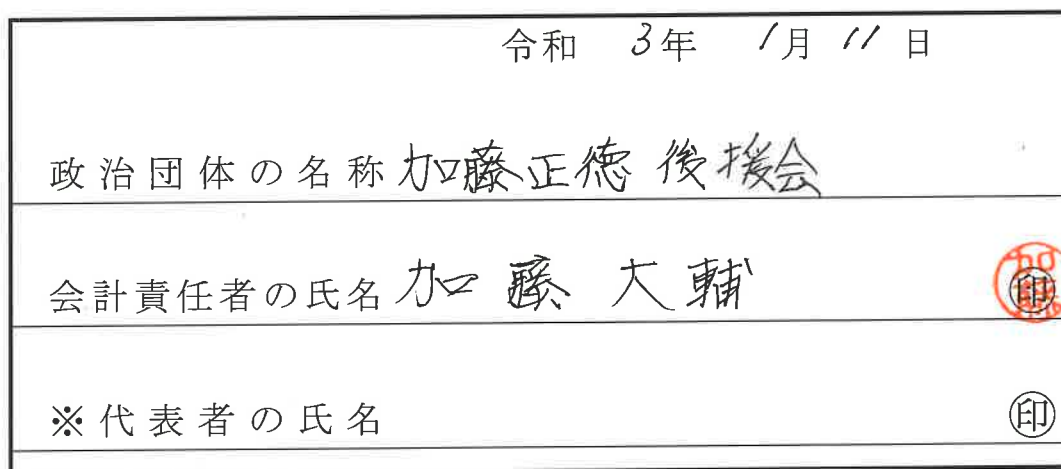 令和 3年 1月 11日
政治団体の名称 加藤正徳後援会
会計責任者の氏名 加藤大輔 印
※代表者の氏名 印